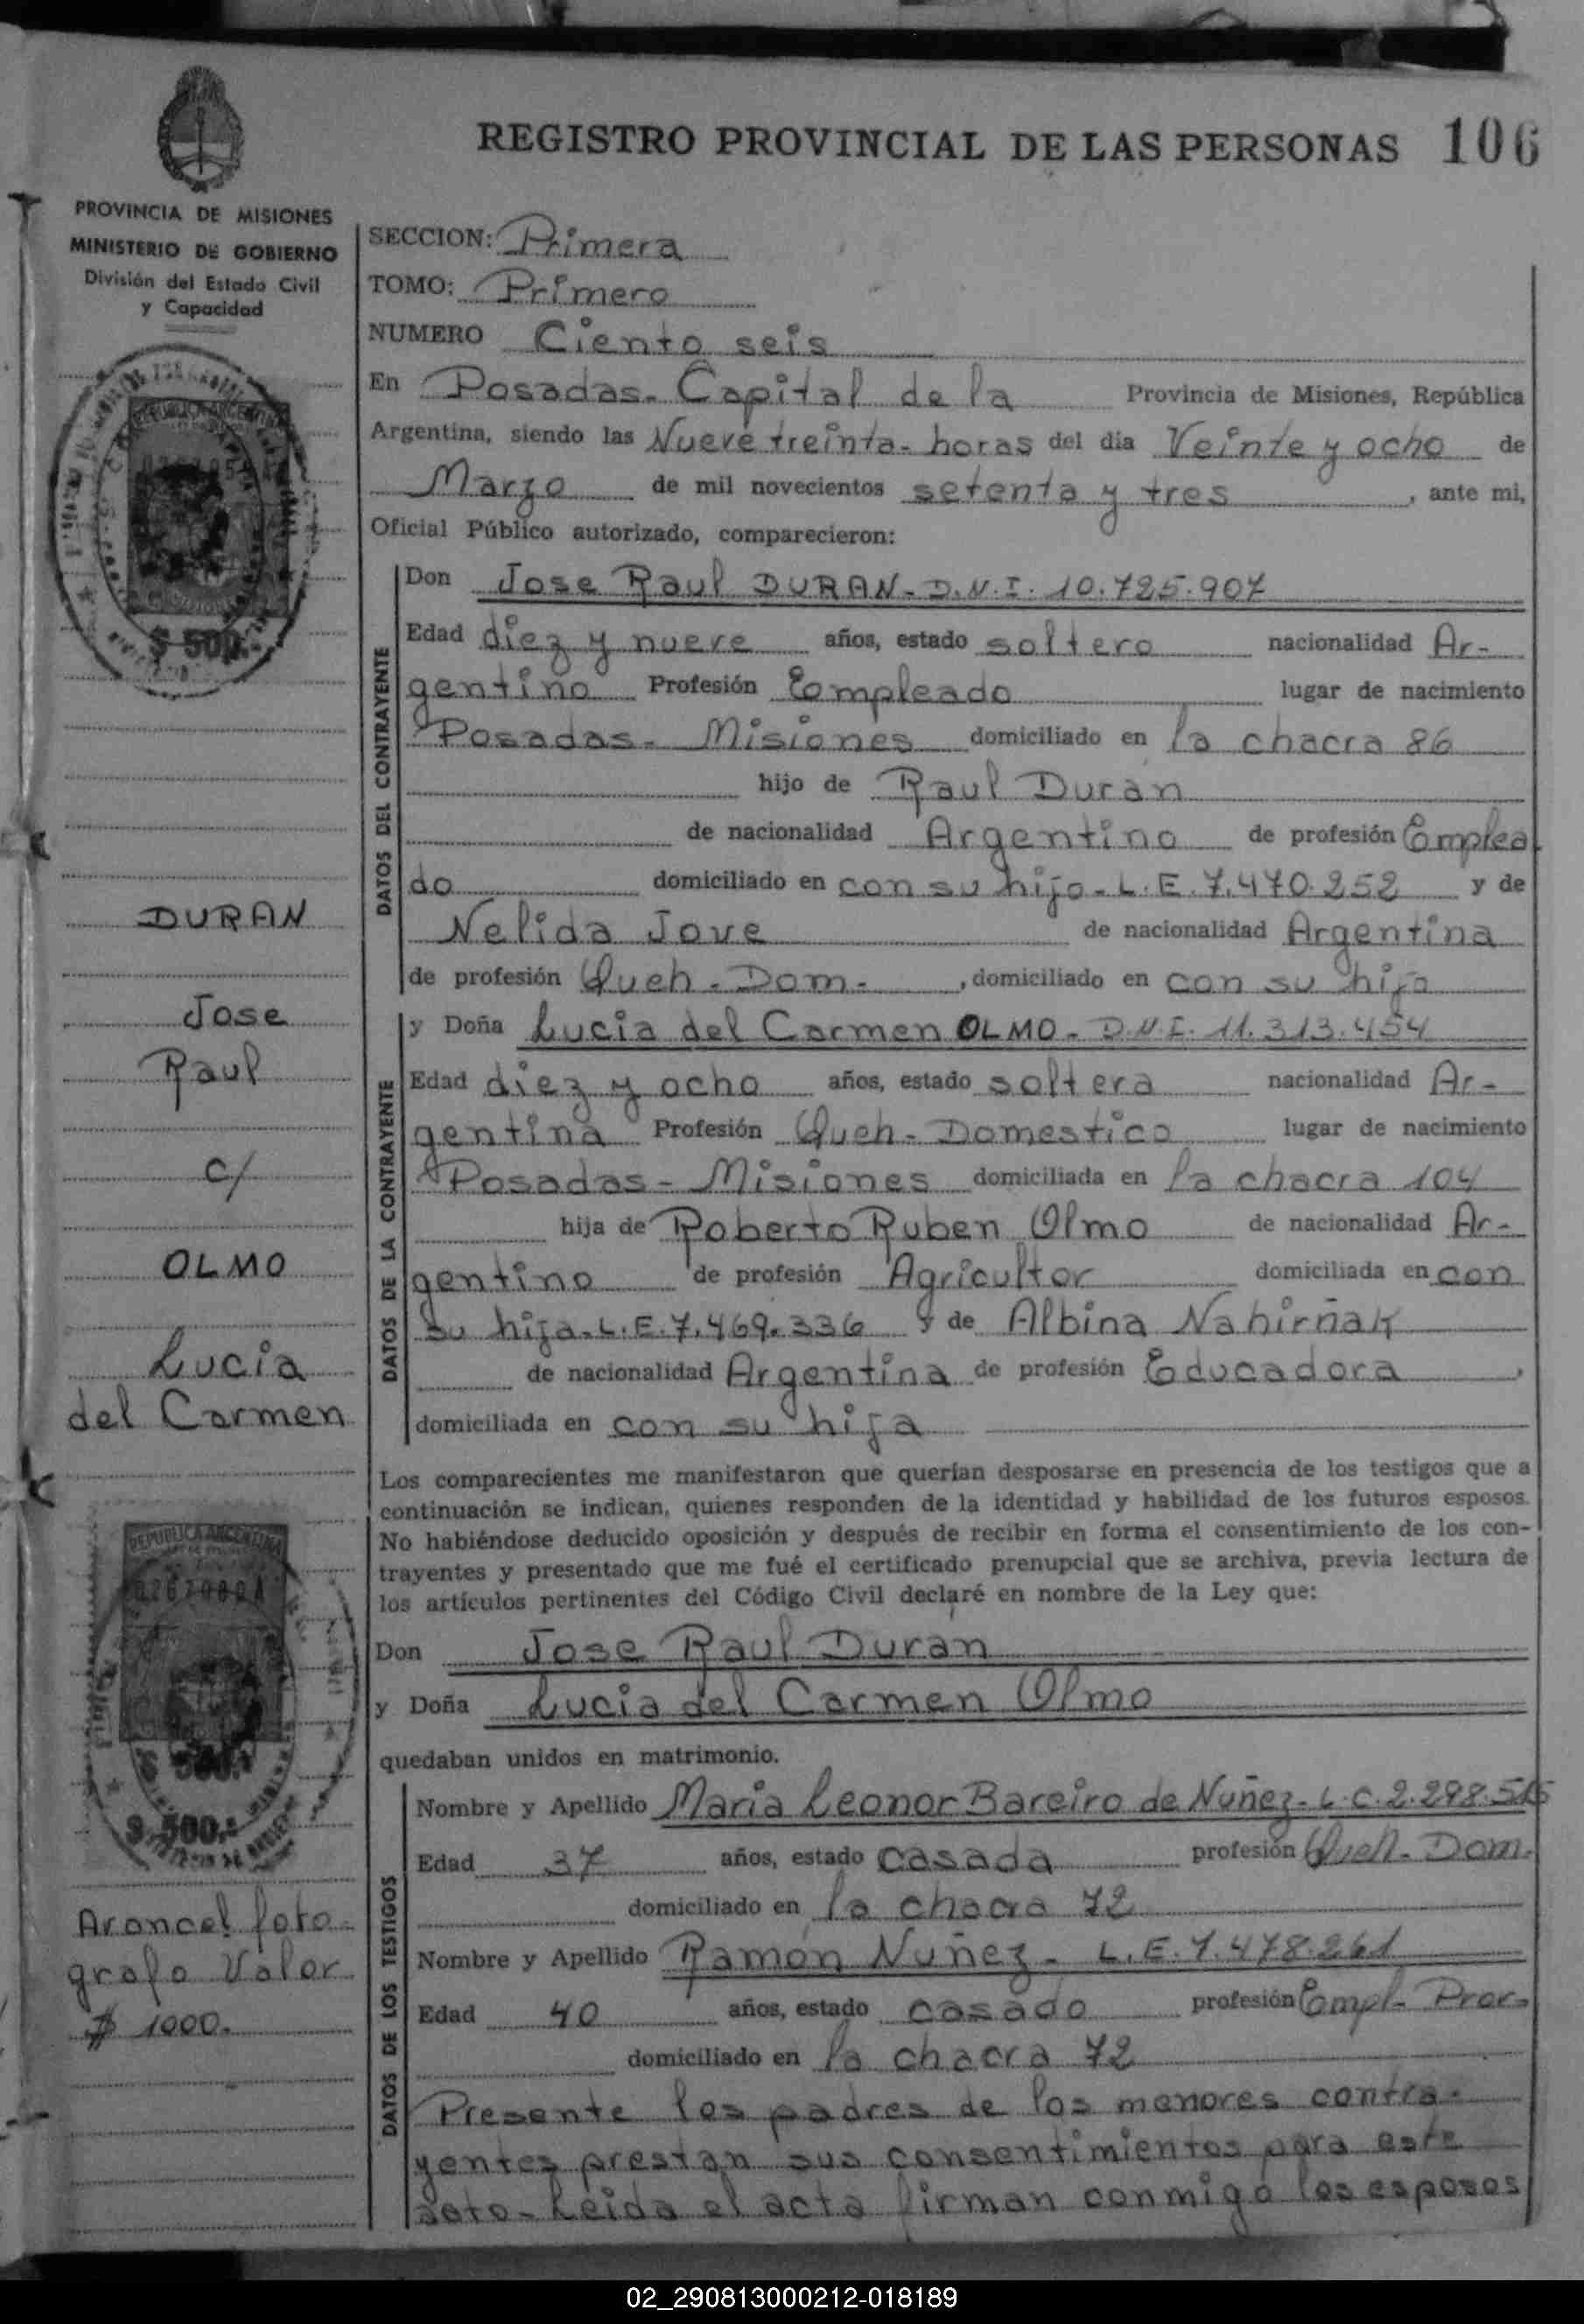 REGISTRO PROVINCIAL DE LAS PERSONAS 106
PROVINCIA DE MISIONES
MINISTERIO DE GOBIERNO
División del Estado Civil
y Capacidad
SECCION: Primera
TOMO: Primero
NUMERO Ciento seis
En Posadas - Capital de la Provincia de Misiones, República
Argentina, siendo las Nueve treinta - horas del dia Veinte y ocho de
Marzo de mil novecientos setenta y tres, ante mi,
Oficial Público autorizado, comparecieron:
DATOS DEL CONTRAYENTE
Don Jose Raul DURAN - D.N.I. 10.725.907
Edad diez y nueve años, estado soltero nacionalidad Ar-
gentino Profesión Empleado lugar de nacimiento
Posadas - Misiones domiciliado en la chacra 86
hijo de Raul Duran
de nacionalidad Argentino de profesión Emplea
do domiciliado en con su hijo - L.E. 7.470.252 y de
Nelida Jove de nacionalidad Argentina
de profesión Queh - Dom -, domiciliado en con su hijo
DATOS DE LA CONTRAYENTE
y Doña Lucia del Carmen OLMO - D.N.I. 11.313.454
Edad diez y ocho años, estado soltera nacionalidad Ar-
gentina Profesión Queh - Domestico lugar de nacimiento
Posadas - Misiones domiciliada en la chacra 104
hija de Roberto Ruben Olmo de nacionalidad Ar-
gentino de profesión Agricultor domiciliada en con
su hija - L.E. 7.469.336 y de Albina Nahirñak
de nacionalidad Argentina de profesión Educadora,
domiciliada en con su hija
Los comparecientes me manifestaron que querían desposarse en presencia de los testigos que a
continuación se indican, quienes responden de la identidad y habilidad de los futuros esposos.
No habiéndose deducido oposición y después de recibir en forma el consentimiento de los con-
trayentes y presentado que me fué el certificado prenupcial que se archiva, previa lectura de
los artículos pertinentes del Código Civil declaré en nombre de la Ley que:
Don Jose Raul Duran
y Doña Lucia del Carmen Olmo
quedaban unidos en matrimonio.
DATOS DE LOS TESTIGOS
Nombre y Apellido Maria Leonor Bareiro de Nuñez - L.C. 2.298.515
Edad 37 años, estado casada profesión Queh - Dom.
domiciliado en la chacra 72
Nombre y Apellido Ramón Nuñez - L.E. 7.478.261
Edad 40 años, estado casado profesión Empl -
domiciliado en la chacra 72
Presente los padres de los menores contra-
yentes prestan sus consentimientos para este
acto - Leida el acta firman conmigo los esposos
REPUBLICA ARGENTINA
$ 500.-
DURAN
Jose
Raul
c/
OLMO
Lucia
del Carmen
REPUBLICA ARGENTINA
$ 500.-
$ 500.-
Arancel foto-
grafo Valor
$ 1000.-
02_290813000212-018189